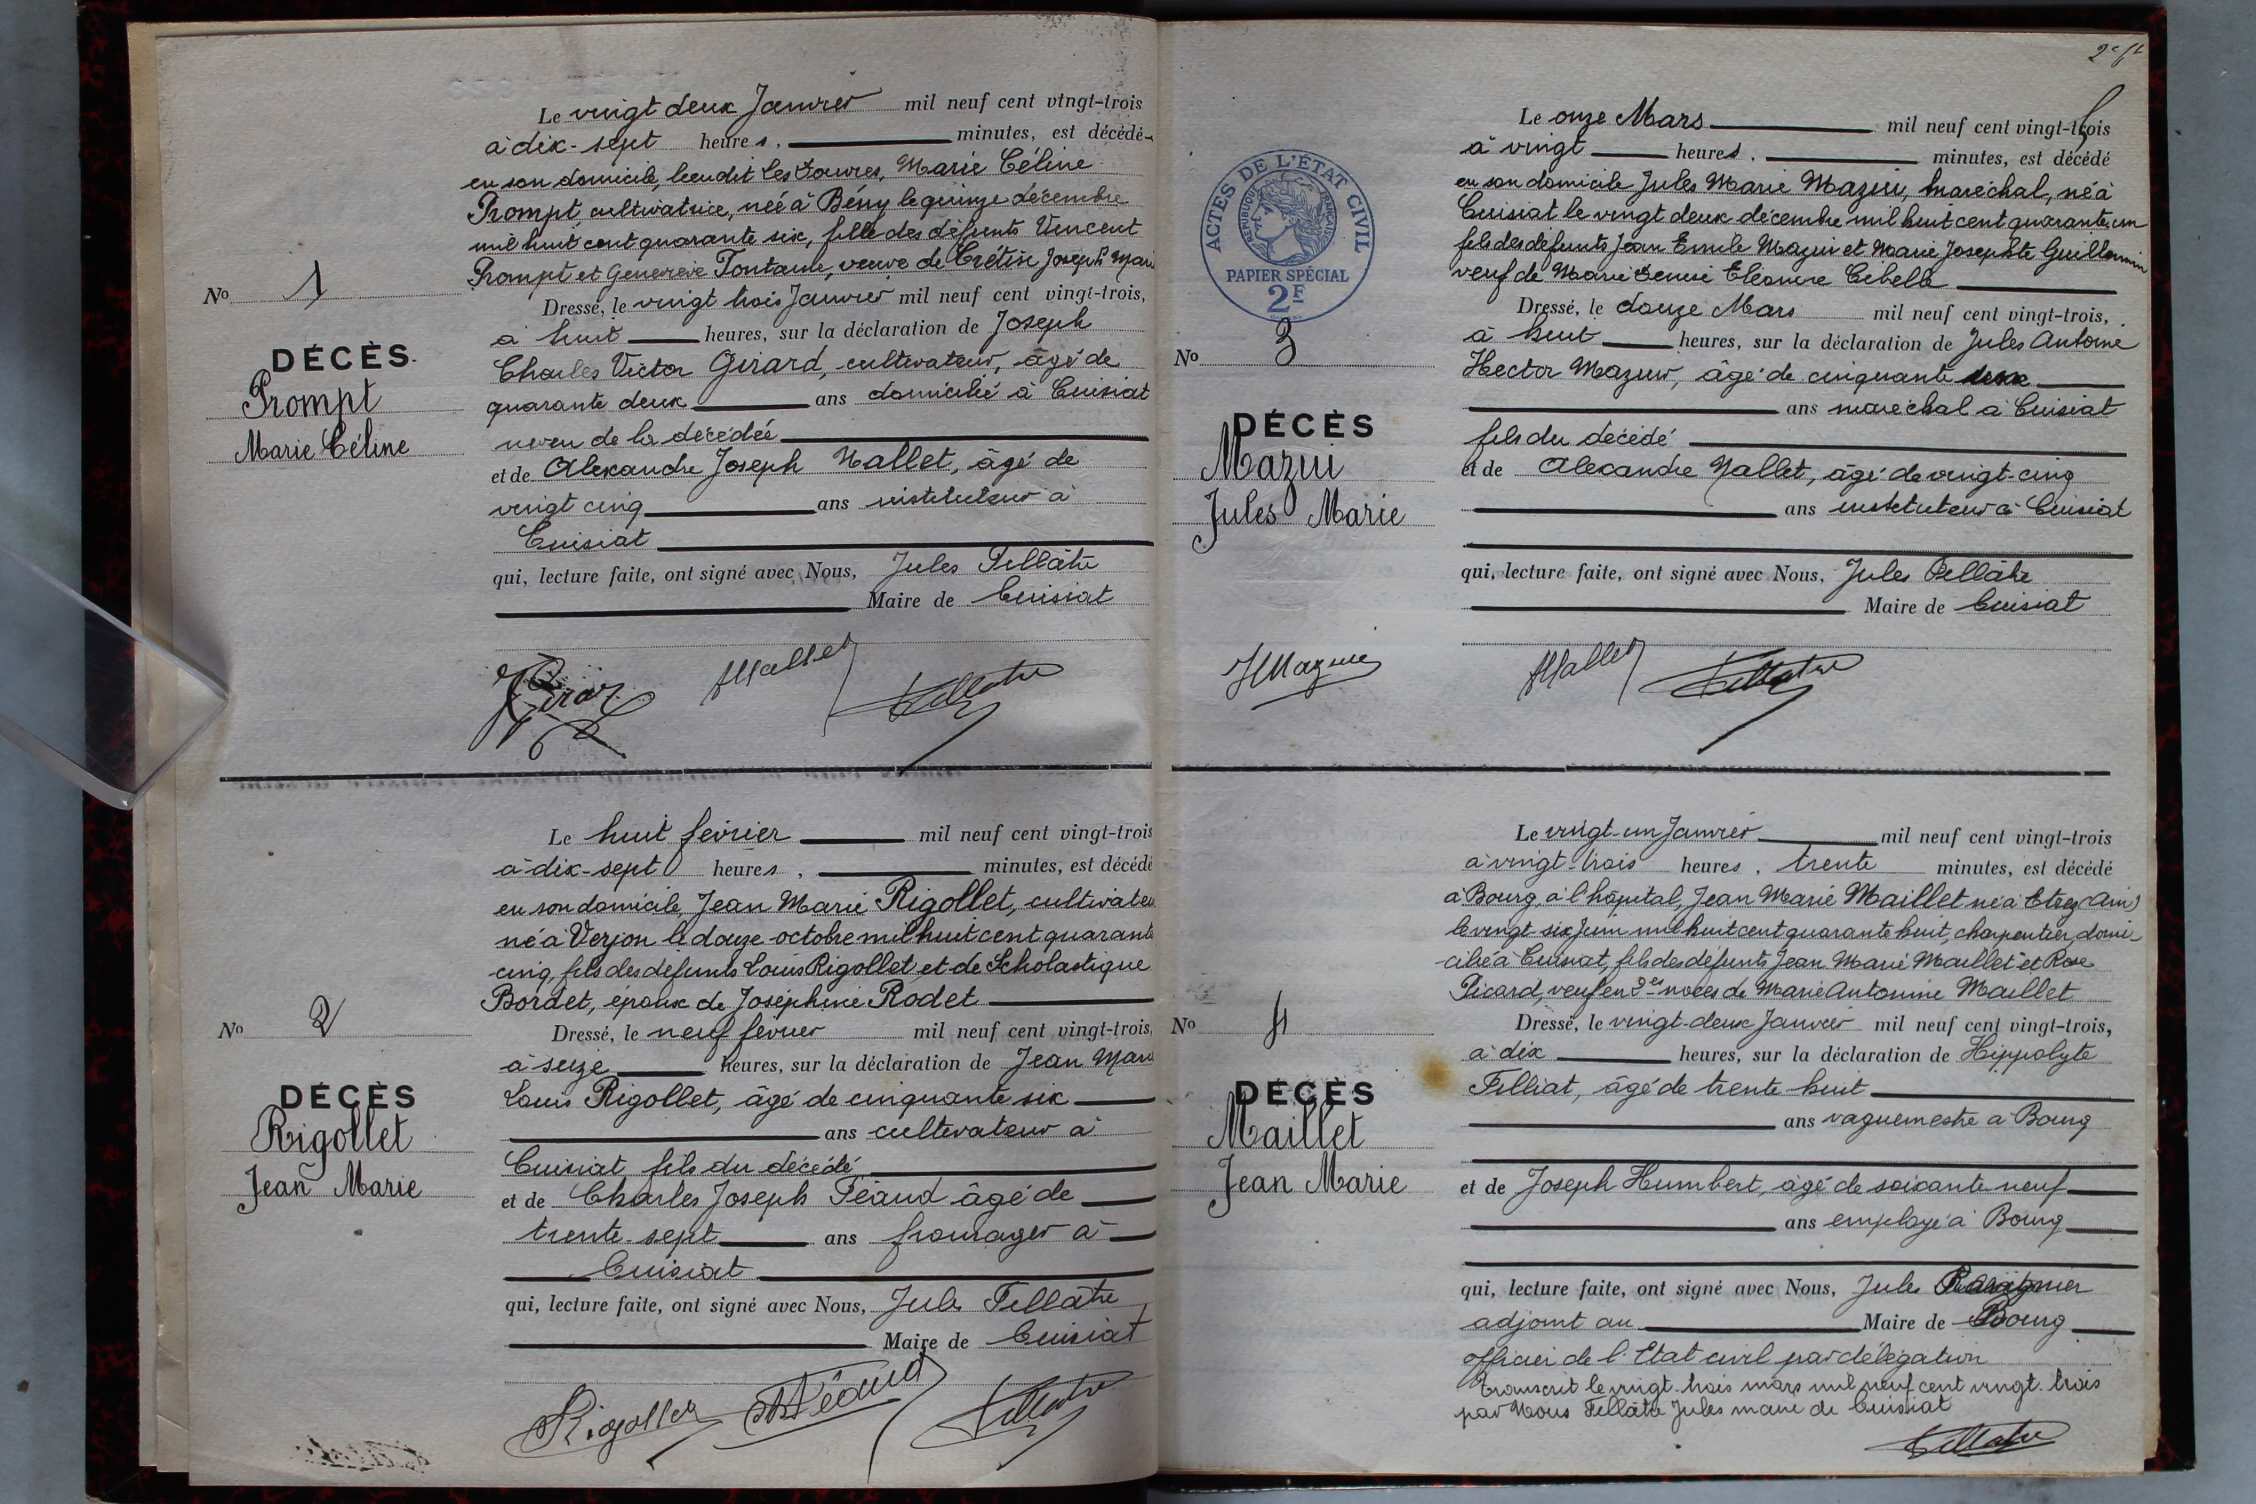 Le vingt deux Janvier mil neuf cent vingt-trois
à dix-sept heures, minutes, est décédé
en son domicile, lieu dit Les Marie Céline
Prompt, cultivatrice, née à Bény le quinze décembre
mil huit cent quarante six, fille des défunts Vincent
Prompt et Geneviève Fontaine, veuve de Crétin Joseph Marie
No 1
Dressé, le vingt trois Janvier mil neuf cent vingt-trois,
à huit heures, sur la déclaration de Joseph
DÉCÈS
Charles Victor Girard, cultivateur, âgé de
Prompt
quarante deux ans domicilié à Cuisiat
Marie Céline
neveu de la décédée
et de Alexandre Joseph Nallet, âgé de
vingt cinq ans instituteur à
Cuisiat
qui, lecture faite, ont signé avec Nous, Jules Tellâtre
Maire de Cuisiat
Girard
Nallet
Tellatre
Le huit février mil neuf cent vingt-trois
à dix-sept heures, minutes, est décédé
en son domicile, Jean Marie Rigollet, cultivateu
né à Verjon le douze octobre mil huit cent quarante
cinq, fils des défunts Louis Rigollet et de Scholastique
Bordet, époux de Joséphine Rodet
No 2
Dressé, le neuf février mil neuf cent vingt-trois,
à seize heures, sur la déclaration de Jean Marie
DÉCÈS
Louis Rigollet, âgé de cinquante six
Rigollet
ans cultivateur à
Jean Marie
Cuisiat, fils du décédé
et de Charles Joseph Féaud âgé de
trente-sept ans fromager à
Cuisiat
qui, lecture faite, ont signé avec Nous, Jules Tellâtre
Maire de Cuisiat
Rigollet
Féaud
Tellatre
2e ft
Le onze Mars mil neuf cent vingt-trois
à vingt heures, minutes, est décédé
en son domicile Jules Marie Mazuir, maréchal, né à
Cuisiat le vingt deux décembre mil huit cent quarante un
fils des défunts Jean Emile Mazuir et Marie Josephte Guillermin
veuf de Marie Eléonore Cibelle
ACTES DE L'ÉTAT CIVIL
RÉPUBLIQUE FRANÇAISE
PAPIER SPÉCIAL
2F
No 3
Dressé, le douze Mars mil neuf cent vingt-trois,
à huit heures, sur la déclaration de Jules Antoine
Hector Mazuir, âgé de cinquante deux
DÉCÈS
ans maréchal à Cuisiat
Mazui
fils du décédé
Jules Marie
et de Alexandre Nallet, âgé de vingt-cinq
ans instituteur à Cuisiat
qui, lecture faite, ont signé avec Nous, Jules Tellâtre
Maire de Cuisiat
HMazuir
Nallet
Tellatre
Le vingt-un Janvier mil neuf cent vingt-trois
à vingt-trois heures, trente minutes, est décédé
à Bourg, à l'hôpital, Jean Marie Maillet né à Etrez (Ain)
le vingt six Juin mil huit cent quarante huit, charpentier, domi-
cilié à Cuisiat, fils des défunts Jean Marie Maillet et Rose
Picard, veuf en 2es noces de Marie Antoinine Maillet
No 4
Dressé, le vingt-deux Janvier mil neuf cent vingt-trois,
à dix heures, sur la déclaration de Hippolyte
DÉCÈS
Tilliat, âgé de trente-huit
Maillet
ans vaguemestre à Bourg
Jean Marie
et de Joseph Humbert, âgé de soixante neuf
ans employé à Bourg
qui, lecture faite, ont signé avec Nous, Jules
adjoint au Maire de Bourg
officier de l'Etat civil par délégation
transcrit le vingt-trois mars mil neuf cent vingt-trois
par Nous Tellâtre Jules maire de Cuisiat
Tellatre